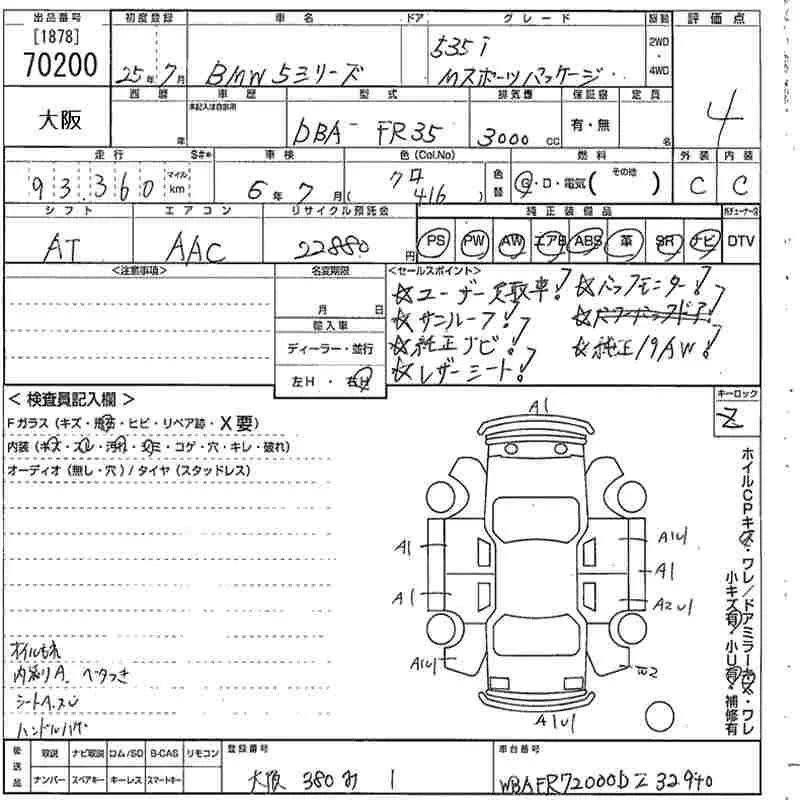 出品番号 初度登録 車名 ドア グレード 駆動 評価点
[1878]
70200 25年 7月 BMW 5シリーズ 535i 2WD
Mスポーツパッケージ ・
4WD
4
西暦 車歴 型式 排気機 保証書 定員
未記入は自家用
大阪 年 DBA- FR35 3000cc 有・無 名
走行 S#* 車検 色(Col.No) 燃料 外装 内装
93,360 マイル km 6年 7月 クロ (416) 色替 G・D・電気( その他 ) C C
シフト エアコン リサイクル預託金 純正装備品
AT AAC 22880円 PS PW AW エアB ABS 革 SR ナビ DTV
<注意事項> 名変期限 <セールスポイント>
月 日
輸入車
ディーラー・並行
左H・右H
☆ユーザー買取車! ☆バックモニター!
☆サンルーフ!
☆純正ナビ! ☆純正19AW!
☆レザーシート!
キーロック
Z
<検査員記入欄>
Fガラス(キズ・飛石・ヒビ・リペア跡・X要)
内装(キズ・スレ・汚れ・シミ・コゲ・穴・キレ・破れ)
オーディオ(無し・穴)/タイヤ(スタッドレス)
A1
A1 A1U1
A1
A1 A2U1
A1U1 W2
A1U1
ホイルCPキズ・ワレ/ドアミラーキズ・ワレ
小キズ有・小U有・補修有
オイルもれ
内張りA. ベタつき
シートA.スレ
ハンドルハゲ
後送品 取説 ナビ取説 ロム/SD B-CAS リモコン 登録番号 車台番号
ナンバー スペアキー キーレス スマートキー 大阪 380 み 1 WBAFR72000DZ32940